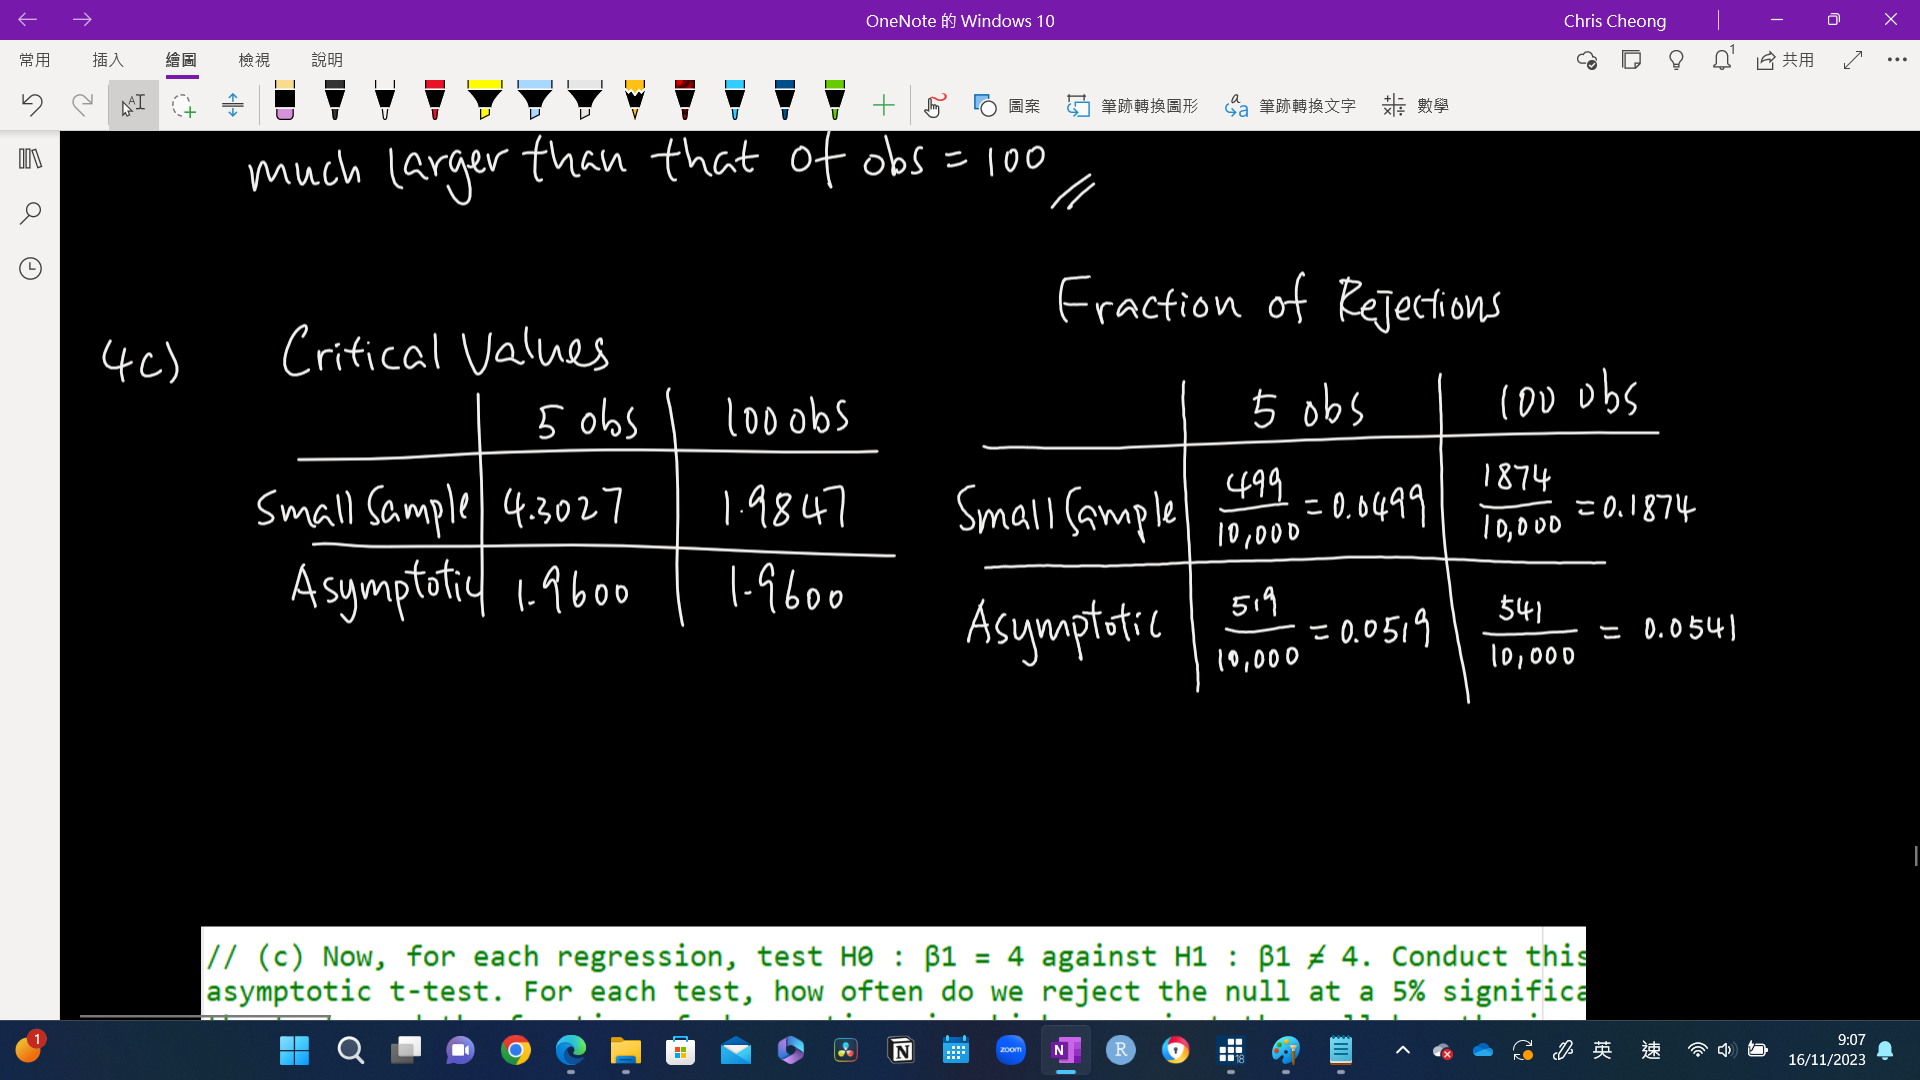 OneNote 的 Windows 10
Chris Cheong
常用 插入 繪圖 檢視 說明
1
共用
圖案 筆跡轉換圖形 筆跡轉換文字 數學
much larger than that of obs = 100
Fraction of Rejections
4c) Critical Values
5 obs 100 obs
5 obs 100 obs
Small Sample 4.3027 1.9847
Asymptotic 1.9600 1.9600
Small Sample 499/10,000 = 0.0499 1874/10,000 = 0.1874
Asymptotic 519/10,000 = 0.0519 541/10,000 = 0.0541
// (c) Now, for each regression, test H0 : β1 = 4 against H1 : β1 ≠ 4. Conduct this
asymptotic t-test. For each test, how often do we reject the null at a 5% significa
1
zoom
N
R
18
英
速
9:07
16/11/2023